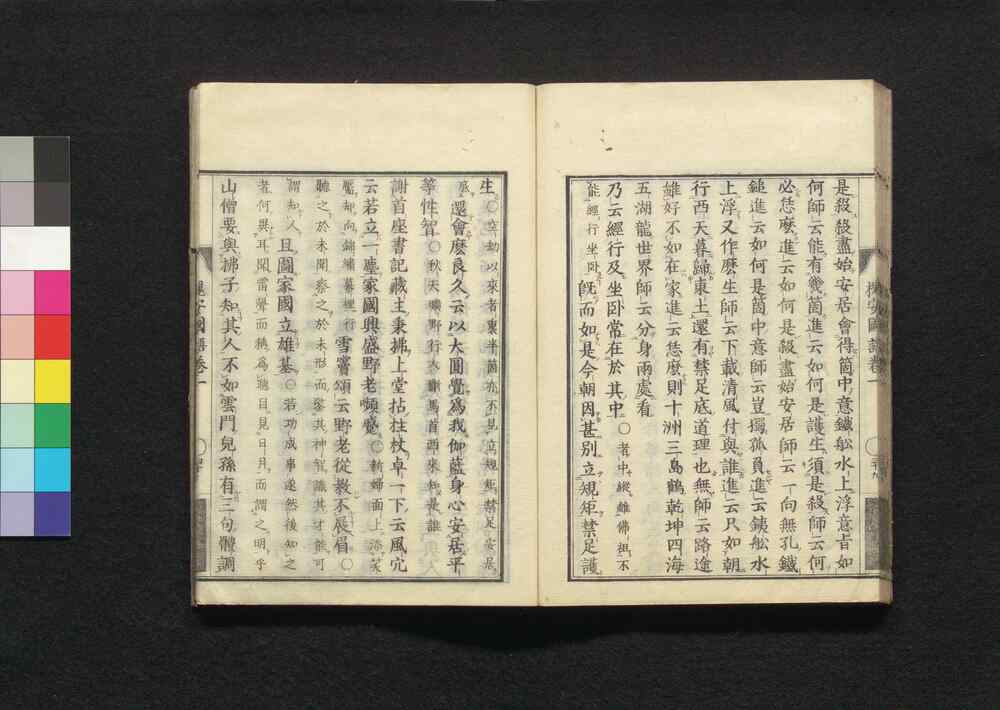 是殺殺盡始安居會得箇中意鐵舩水上浮意㫖如
何師云能有幾箇進云如何是護生須是殺師云何
必恁麼進云如何是殺盡始安居師云一向無孔鐵
鎚進云如何是箇中意師云豈獨孤負進云鐵舩水
上浮又作麼生師云下載清風付與誰進云只如朝
行西天暮歸東土還有禁足底道理也無師云路途
雖好不如在家進云恁麼則十洲三島鶴乾坤四海
五湖龍世界師云分身兩處看
乃云經行及坐卧常在於其中○者中縱雖佛祖不
能經行坐卧既而如是今朝因甚別立規矩禁足護
生○空劫以來者裏半箇亦不見立規矩禁足安居
底還會麼良久云以大圓覺爲我伽藍身心安居平
等性智○秋天曠野行人斷馬首西來知是誰
謝首座書記藏主秉拂上堂拈柱杖卓一下云風穴
云若立一塵家國興盛野老嚬蹙○新婦面上添笑
靨却向錦繡幕裡行雪竇頌云野老從教不展眉○
聽之於未聞察之於未形而鑒其神智識其才能可
謂知人且圖家國立雄基○若功成事遂然後知之
者何異耳聞雷聲而稱爲聽目見日月而謂之明乎
山僧要與拂子知其人不如雲門兒孫有三句體調
槐安國語卷一